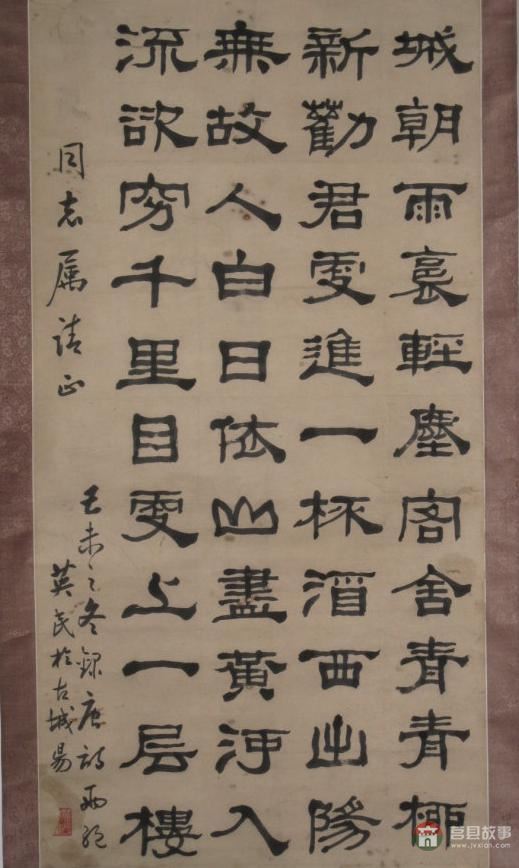 城朝雨裛輕塵客舍青青柳
新勸君更進一杯酒西出陽
無故人白日依山盡黃河入
流欲窮千里目更上一层樓
同志属請正
己未之冬録唐诗两绝
英民於古城易
莒县故事
www.jvxian.com